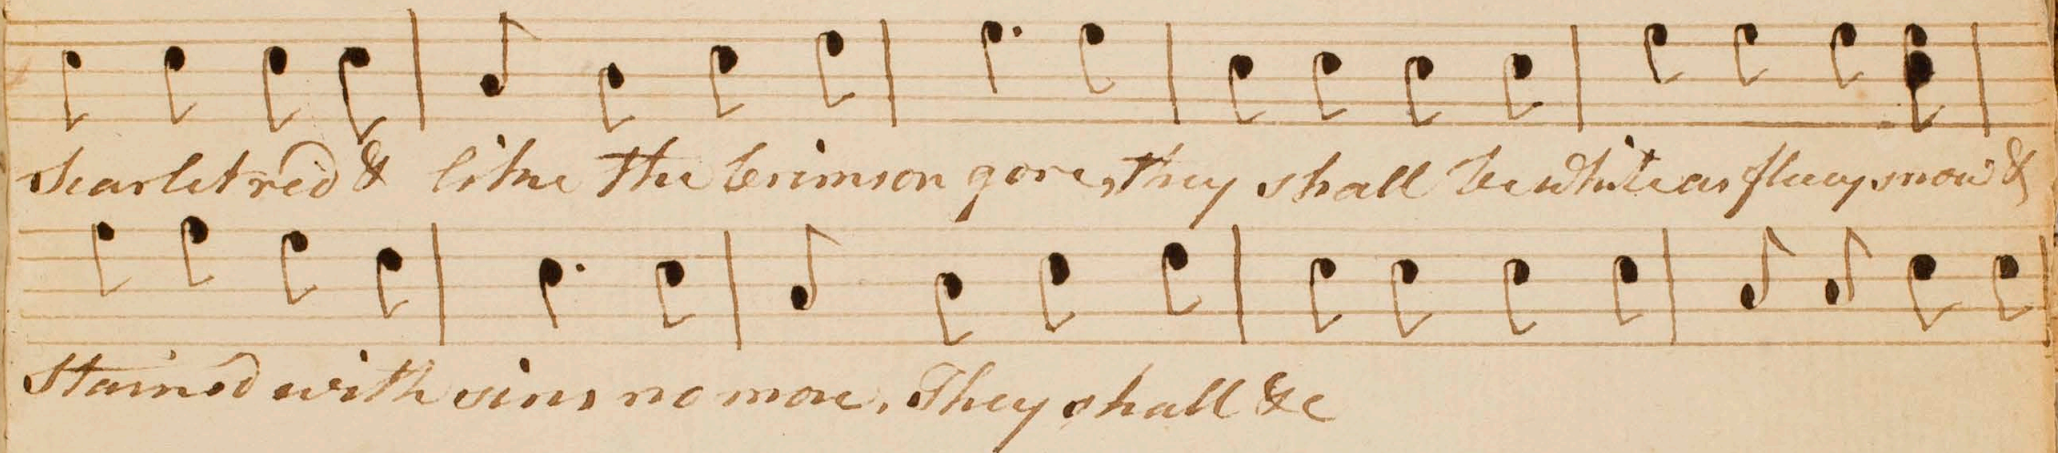 Scarlet red & like the Crimson gore, they shall be white as fleecy snow &
Stained with sins no more. They shall &c